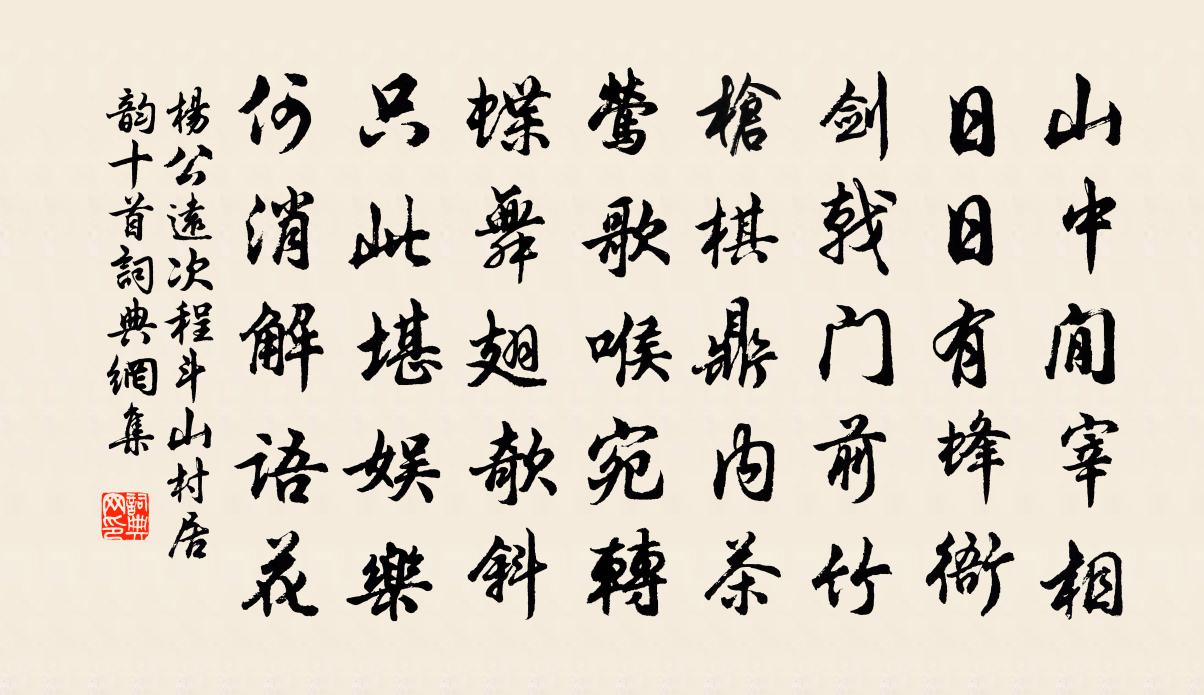 山中閒宰相
日日有蜂衙
剑戟门前竹
槍棋鼎内茶
鶯歌喉宛轉
蝶舞翅欹斜
只此堪娱樂
何消解語花
楊公遠次程斗山村居
韵十首詞典網集
詞典网印